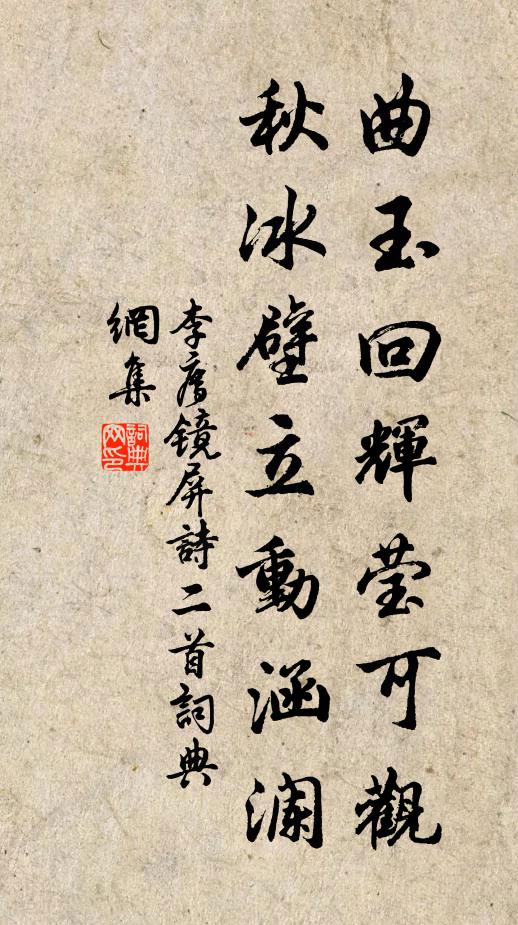 曲玉回輝莹可觀
秋冰壁立動涵澜
李廌镜屏詩二首詞典
網集
詞典
网印